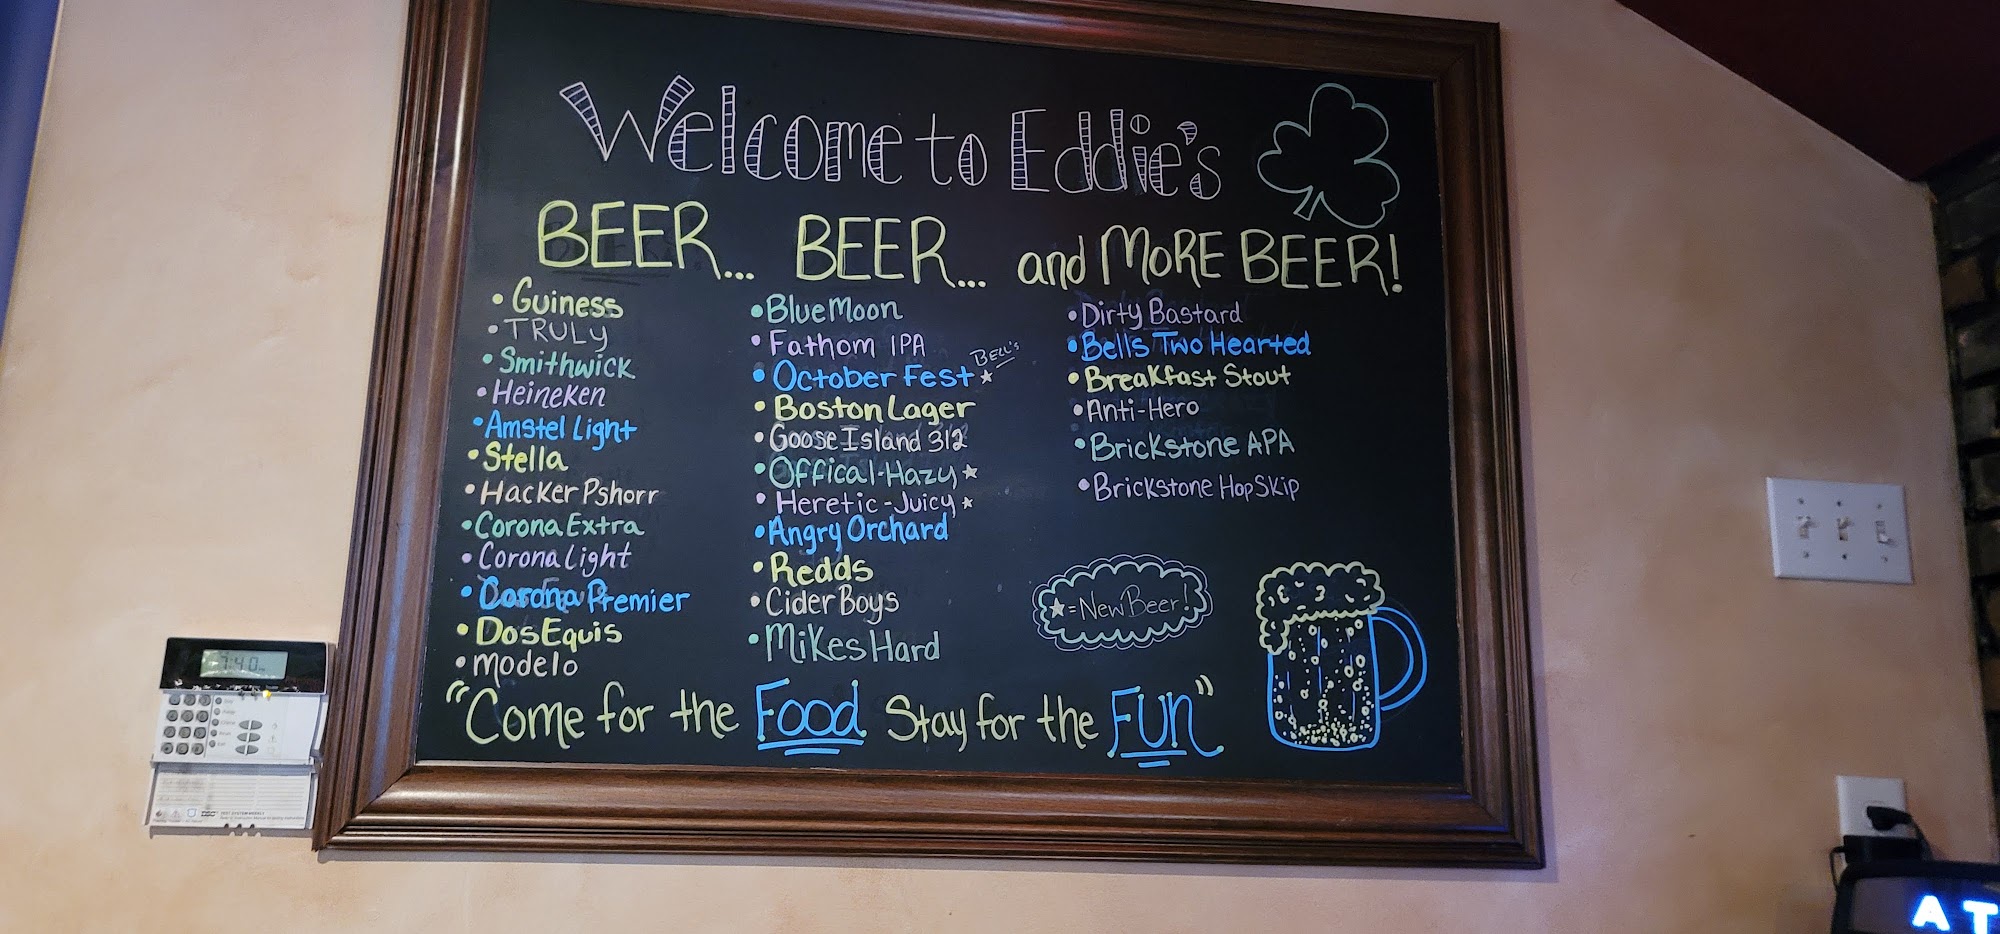 Welcome to Eddie's
BEER... BEER... and MORE BEER!
• Guiness
• TRULY
• Smithwick
• Heineken
• Amstel Light
• Stella
• Hacker Pshorr
• Corona Extra
• Corona Light
• Corona Premier
• Dos Equis
• Modelo
• Blue Moon
• Fathom IPA
• October Fest ★ Bell's
• Boston Lager
• Goose Island 312
• Offical-Hazy ★
• Heretic-Juicy ★
• Angry Orchard
• Redds
• Cider Boys
• Mikes Hard
• Dirty Bastard
• Bells Two Hearted
• Breakfast Stout
• Anti-Hero
• Brickstone APA
• Brickstone HopSkip
★ = New Beer!
"Come for the Food Stay for the FUN"
7:40
DSC
AT